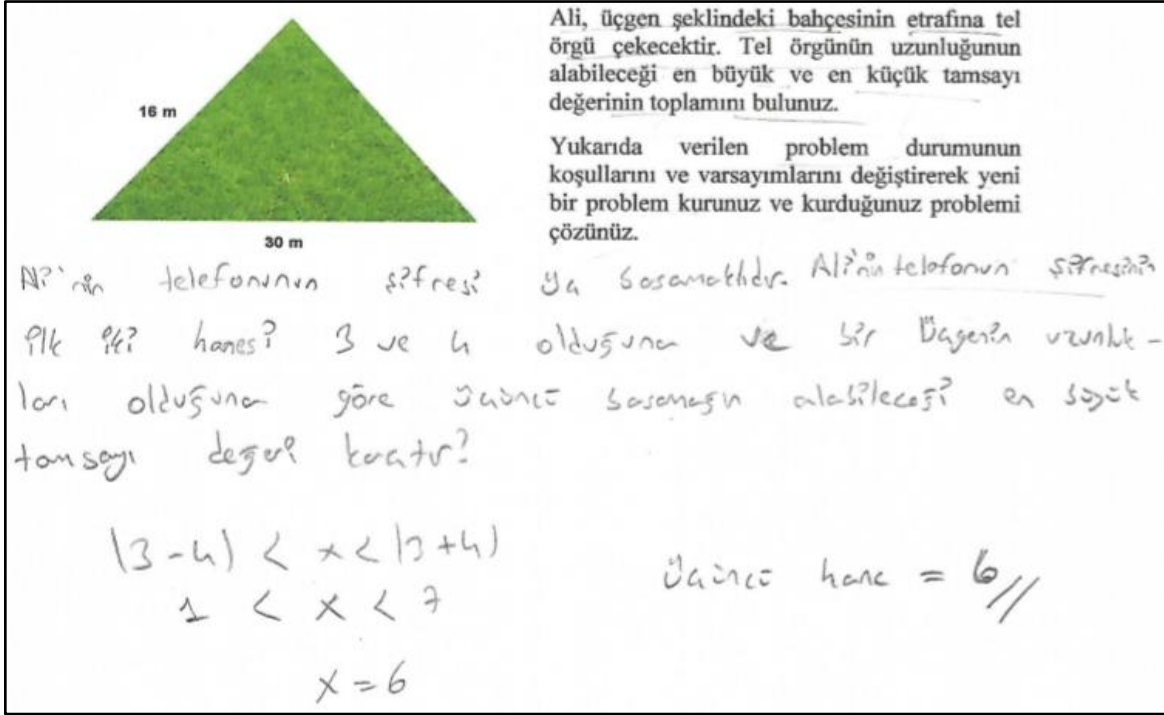 Ali, üçgen şeklindeki bahçesinin etrafına tel
örgü çekecektir. Tel örgünün uzunluğunun
alabileceği en büyük ve en küçük tamsayı
değerinin toplamını bulunuz.
16 m
Yukarıda verilen problem durumunun
koşullarını ve varsayımlarını değiştirerek yeni
bir problem kurunuz ve kurduğunuz problemi
çözünüz.
30 m
Ali'nin telefonunun şifresi üç basamaklıdır. Ali'nin telefonun şifresinin
ilk iki hanesi 3 ve 4 olduğuna ve bir üçgenin uzunluk-
ları olduğuna göre üçüncü basamağın alabileceği en büyük
tamsayı değeri kaçtır?
|3-4| < x < |3+4|
1 < x < 7
x = 6
üçüncü hane = 6//